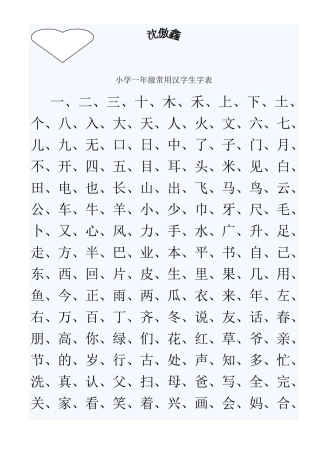 沈傲鑫
小学一年级常用汉字生字表
一、二、三、十、木、禾、上、下、土、
个、八、入、大、天、人、火、文、六、七、
儿、九、无、口、日、中、了、子、门、月、
不、开、四、五、目、耳、头、米、见、白、
田、电、也、长、山、出、飞、马、鸟、云、
公、车、牛、羊、小、少、巾、牙、尺、毛、
卜、又、心、风、力、手、水、广、升、足、
走、方、半、巴、业、本、平、书、自、己、
东、西、回、片、皮、生、里、果、几、用、
鱼、今、正、雨、两、瓜、衣、来、年、左、
右、万、百、丁、齐、冬、说、友、话、春、
朋、高、你、绿、们、花、红、草、爷、亲、
节、的、岁、行、古、处、声、知、多、忙、
洗、真、认、父、扫、母、爸、写、全、完、
关、家、看、笑、着、兴、画、会、妈、合、